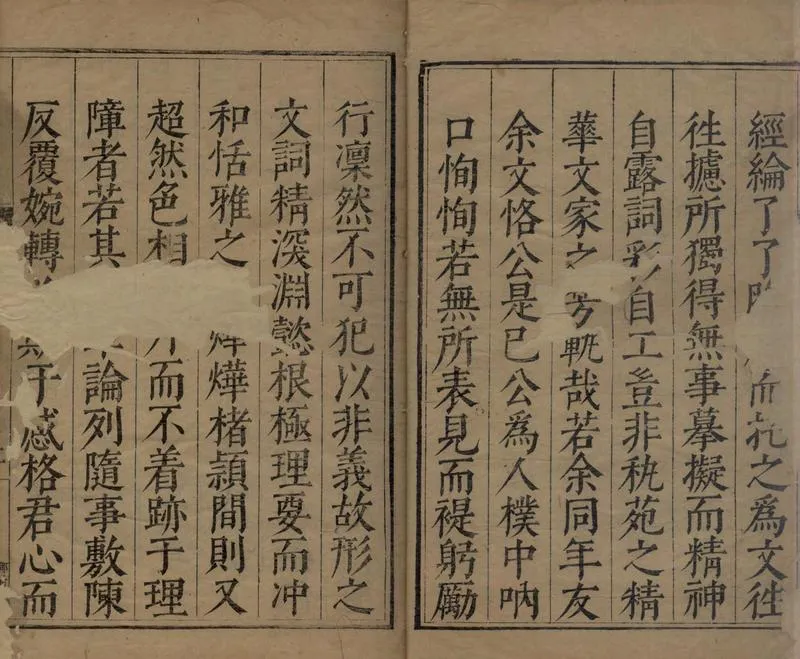 經綸了了而托之爲文徃
徃攄所獨得無事摹擬而精神
自露詞彩自工豈非秇苑之精
華文家之芳軌哉若余同年友
余文恪公是已公爲人樸中吶
口恂恂若無所表見而禔躬勵
行凜然不可犯以非義故形之
文詞精深淵懿根極理要而冲
和恬雅之燁楮穎間則又
超然色相而不着跡于理
障者若其論列隨事敷陳
反覆婉轉于感格君心而